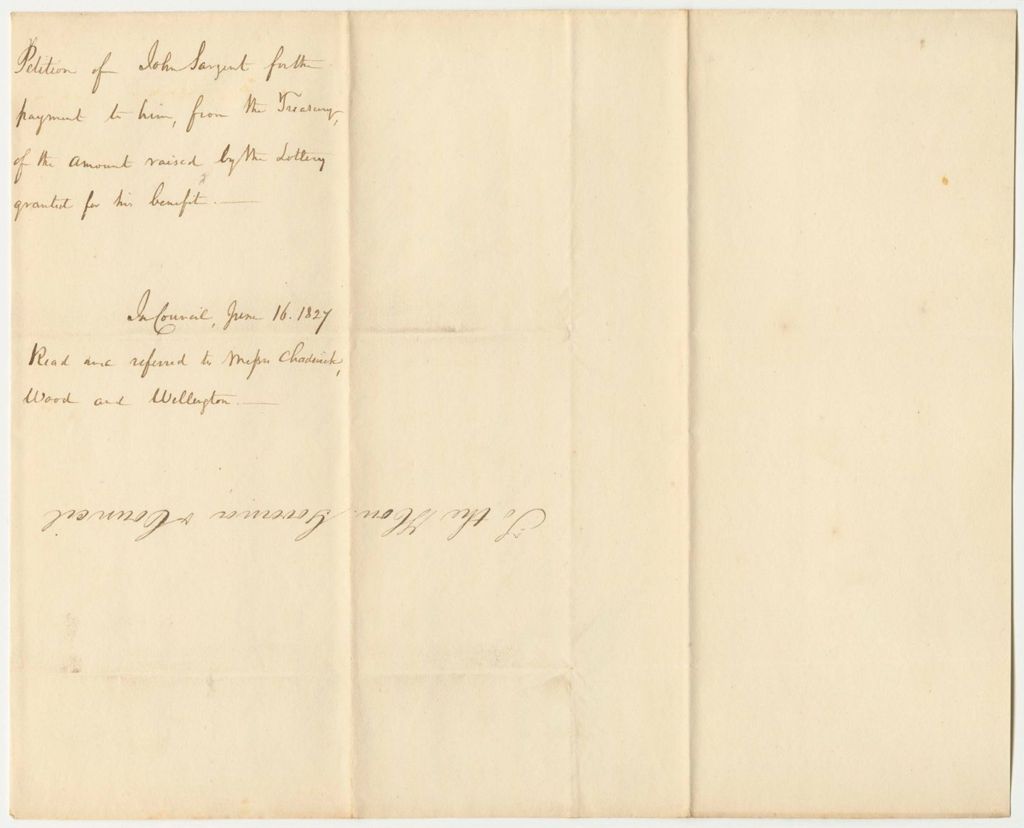 Petition of John Sargent for the
payment to him, from the Treasury,
of the amount raised by the Lottery
granted for his benefit.—
In Council, June 16. 1827
Read and referred to Messrs Chadwick,
Wood and Wellington.—
To the Hon. Governor & Council